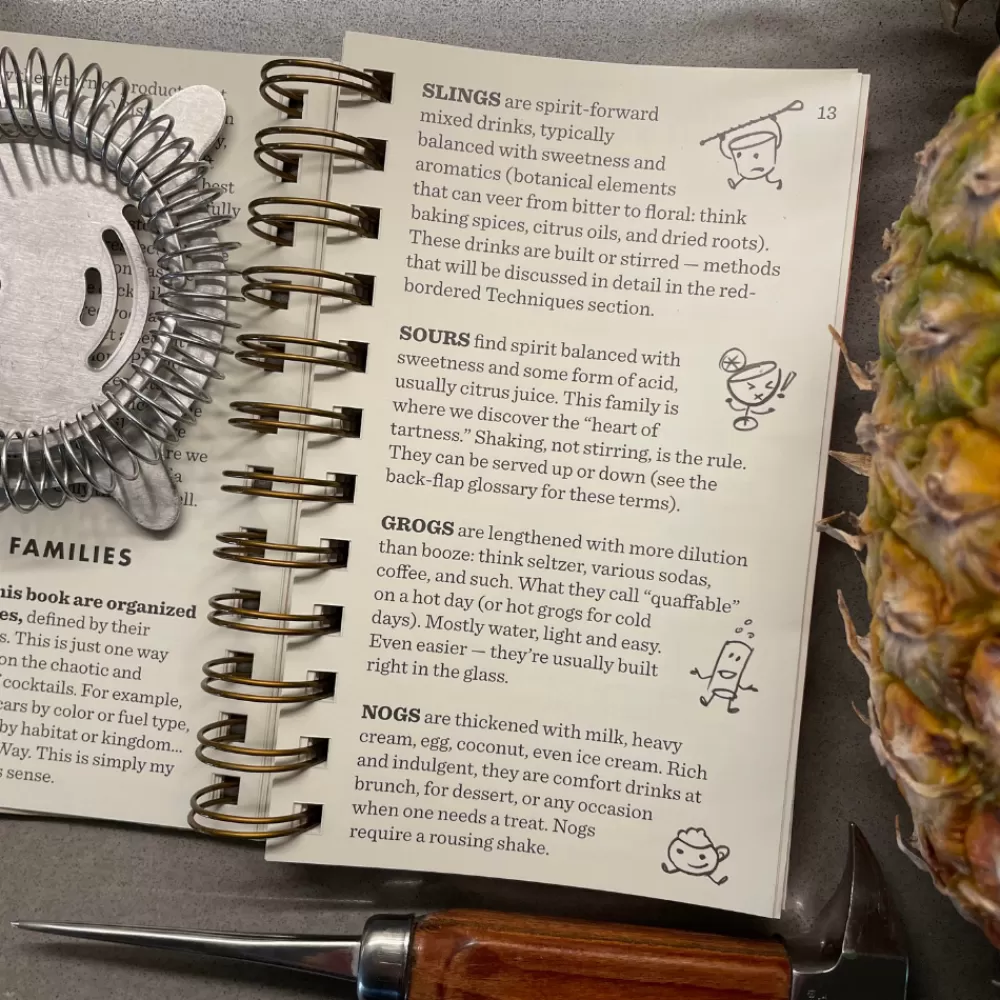 product
best
fully
re we
ell.
FAMILIES
his book are organized
es, defined by their
s. This is just one way
on the chaotic and
cocktails. For example,
cars by color or fuel type,
by habitat or kingdom...
Way. This is simply my
s sense.
13
SLINGS are spirit-forward
mixed drinks, typically
balanced with sweetness and
aromatics (botanical elements
that can veer from bitter to floral: think
baking spices, citrus oils, and dried roots).
These drinks are built or stirred — methods
that will be discussed in detail in the red-
bordered Techniques section.
SOURS find spirit balanced with
sweetness and some form of acid,
usually citrus juice. This family is
where we discover the “heart of
tartness.” Shaking, not stirring, is the rule.
They can be served up or down (see the
back-flap glossary for these terms).
GROGS are lengthened with more dilution
than booze: think seltzer, various sodas,
coffee, and such. What they call “quaffable”
on a hot day (or hot grogs for cold
days). Mostly water, light and easy.
Even easier — they’re usually built
right in the glass.
NOGS are thickened with milk, heavy
cream, egg, coconut, even ice cream. Rich
and indulgent, they are comfort drinks at
brunch, for dessert, or any occasion
when one needs a treat. Nogs
require a rousing shake.